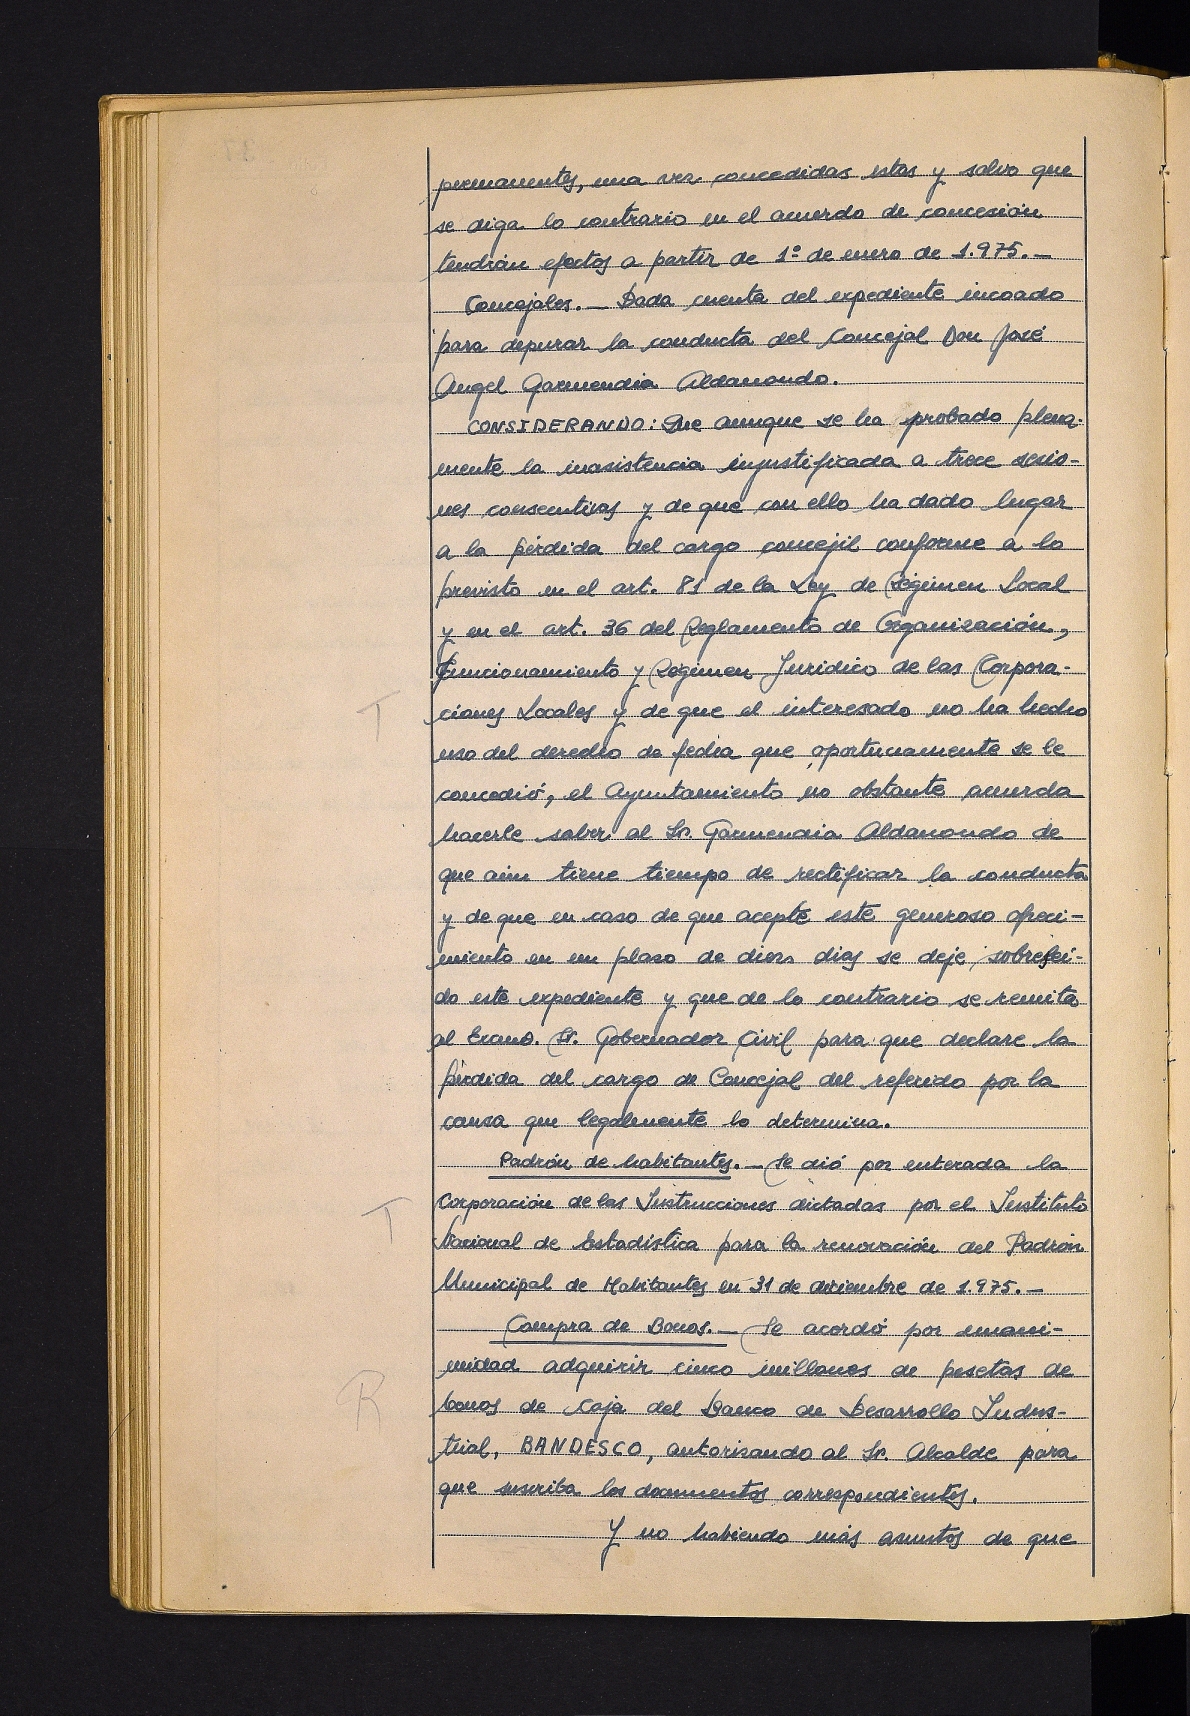 permanentes, una vez concedidas estas y salvo que
se diga lo contrario en el acuerdo de concesión
tendrán efectos a partir de 1º de enero de 1.975.—
Concejales.— Dada cuenta del expediente incoado
para depurar la conducta del Concejal Don José
Angel Garmendia Aldanondo.
CONSIDERANDO: Que aunque se ha probado plena-
mente la inasistencia injustificada a trece sesio-
nes consecutivas y de que con ello ha dado lugar
a la pérdida del cargo concejil conforme a lo
previsto en el art. 81 de la Ley de Régimen Local
y en el art. 36 del Reglamento de Organización,
Funcionamiento y Régimen Jurídico de las Corpora-
T
ciones Locales y de que el interesado no ha hecho
uso del derecho de fecha que oportunamente se le
concedió, el Ayuntamiento no obstante acuerda
hacerle saber al Sr. Garmendia Aldanondo de
que aún tiene tiempo de rectificar la conducta
y de que en caso de que acepte este generoso ofreci-
miento en un plazo de diez dias se deje sobreseí-
do este expediente y que de lo contrario se remita
al Excmo. Sr. Gobernador Civil para que declare la
pérdida del cargo de Concejal del referido por la
causa que legalmente lo determina.
Padrón de habitantes.— Se dió por enterada la
T
Corporación de las Instrucciones dictadas por el Instituto
Nacional de Estadística para la renovación del Padrón
Municipal de Habitantes en 31 de diciembre de 1.975.—
Compra de Bonos.— Se acordó por unani-
midad adquirir cinco millones de pesetas de
R
bonos de Caja del Banco de Desarrollo Indus-
trial, BANDESCO, autorizando al Sr. Alcalde para
que suscriba los documentos correspondientes.
Y no habiendo más asuntos de que